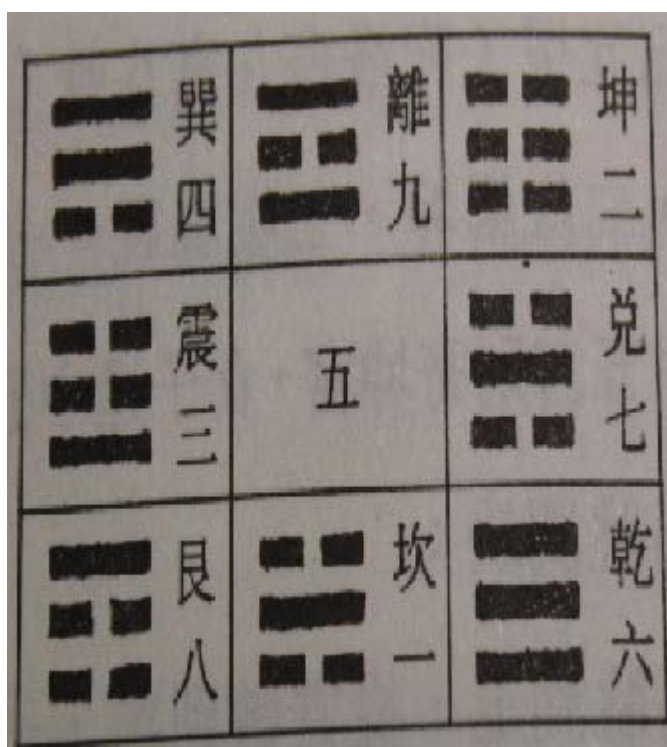 巽四
離九
坤二
震三
五
兑七
艮八
坎一
乾六